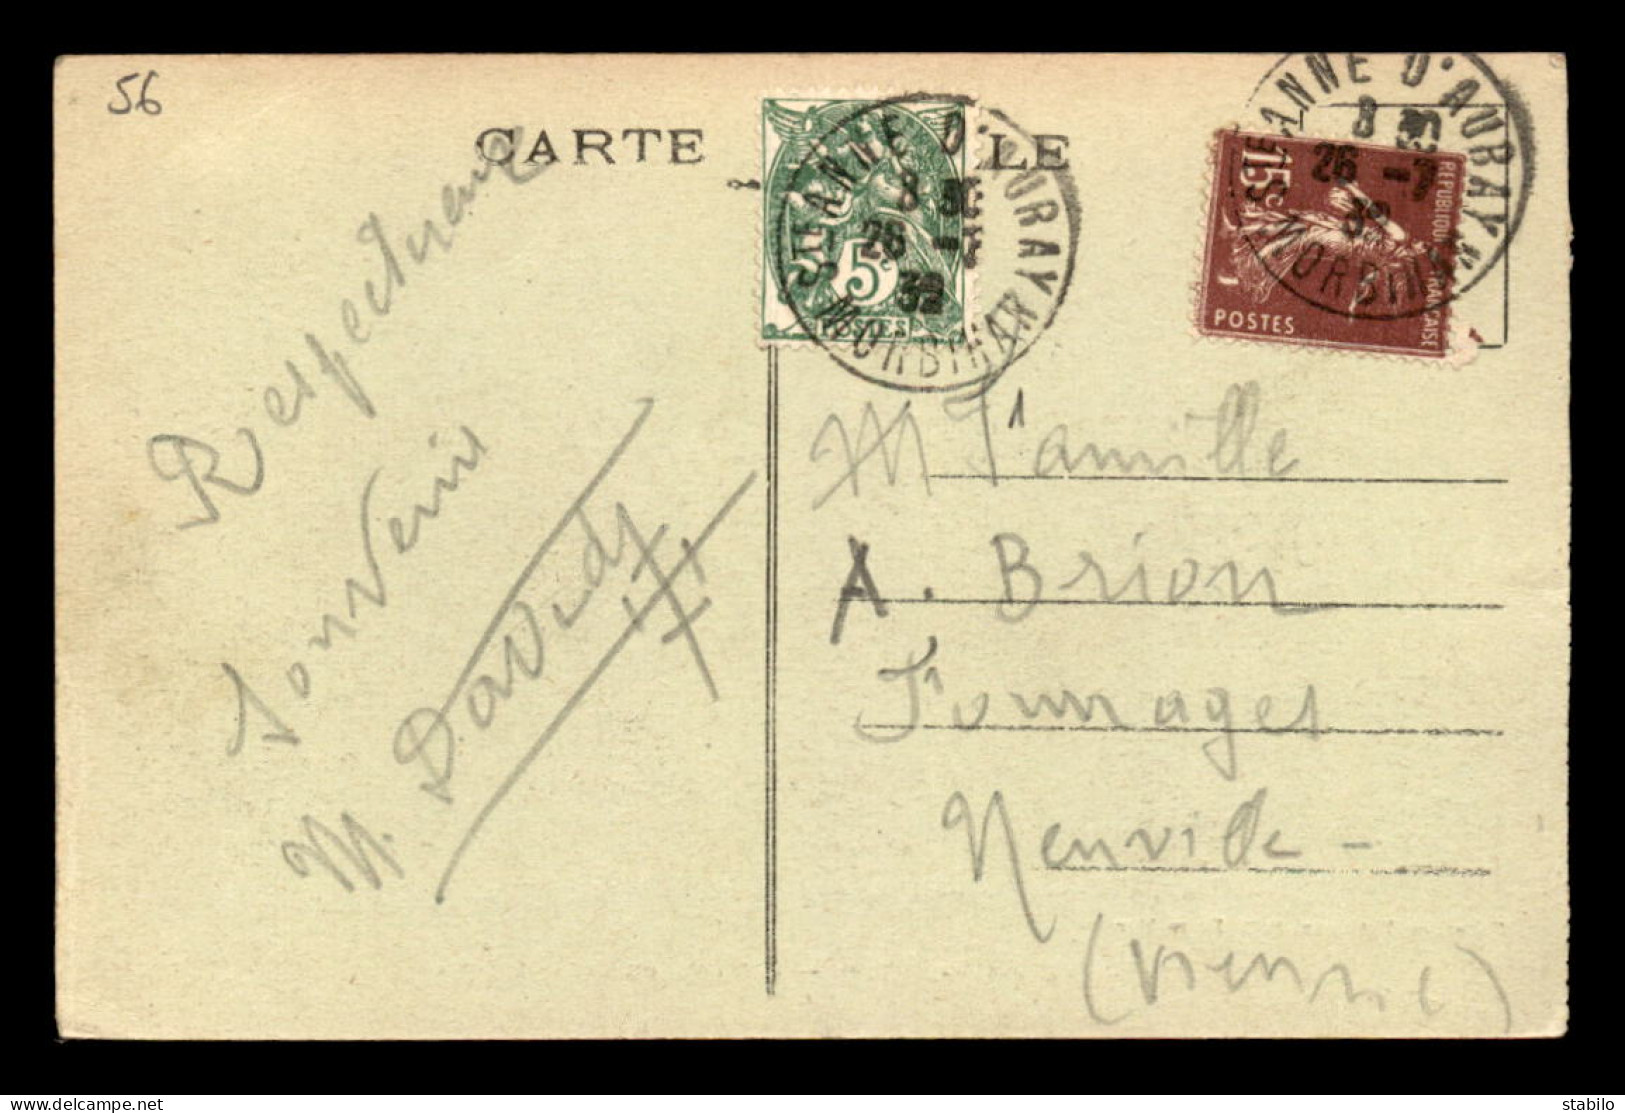 56
CARTE LE
STE ANNE D'AURAY
8 30
26 -7
32
MORBIHAN
5c
POSTES
STE ANNE D'AURAY
8 30
26 -7
32
MORBIHAN
15c
REPUBLIQUE FRANCAISE
POSTES
Respectueux
souvenir
M. David
1
M Famille
A. Brion
Fourrages
Neuville -
(Vienne)
delcampe.net
stabilo